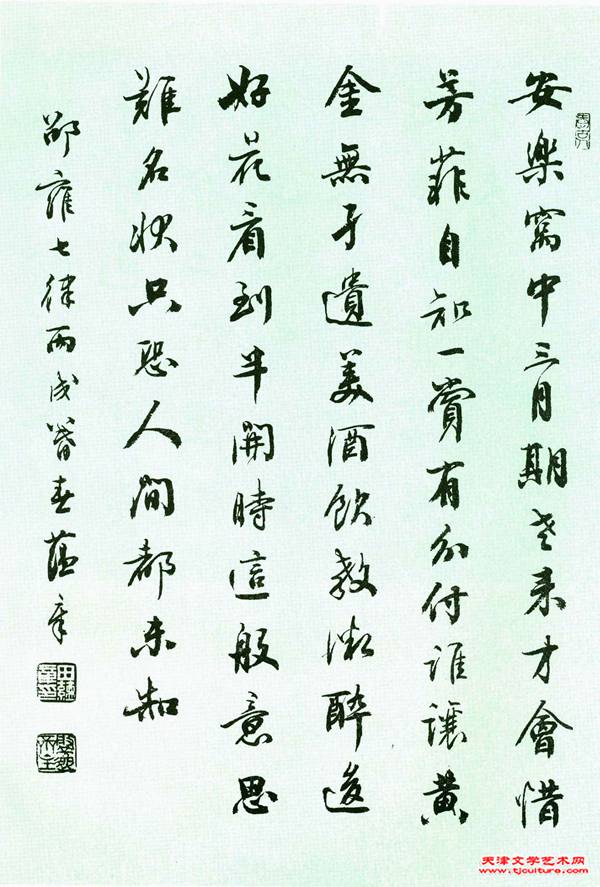 安樂窩中三月期老來才會惜
芳菲自知一賞有分付誰讓黃
金無孑遺美酒飲教微醉後
好花看到半開時這般意思
難名狀只恐人間都未知
邵雍七律丙戌暮春蘊章
田蘊章印
天津文学艺术网
www.tjculture.com